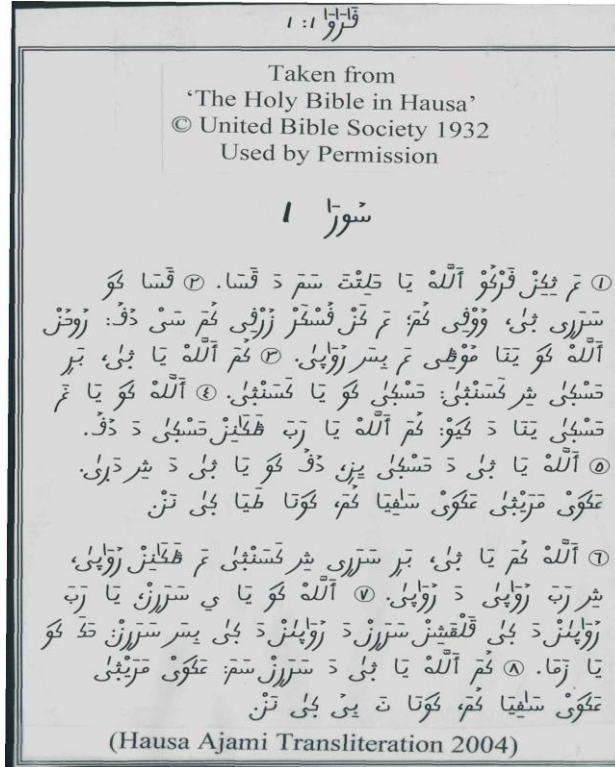 فَرَوَا ١:١
Taken from
‘The Holy Bible in Hausa’
© United Bible Society 1932
Used by Permission
سُورَا ١
① عَ ثِكِنْ فَرْكَوْ اَللَّهْ يَا حَلِتْتَ سَمَ دَ قَسَا. ② قَسَا كُوَ
سَرَرِى ثٜىٰ، وُوفِى كُمَ؛ عَ كَنْ فُسْكَرْ زُرْفِى كُمَ سَىْ دُفُ: رُوحُنْ
اَللَّهْ كُوَ يَنَا مُوْطِى عَ بِسَر رُوَاىٜىٰ. ③ كُمَ اَللَّهْ يَا ثٜىٰ، بَرِ
حَسْكٜىٰ شِر كَسَنْثٜىٰ: حَسْكٜىٰ كُوَ يَا كَسَنْثٜىٰ. ④ اَللَّهْ كُوَ يَا غَ
حَسْكٜىٰ يَنَا دَ كَيَوْ: كُمَ اَللَّهْ يَا رَبَ طَكَانِنْ حَسْكٜىٰ دَ دُفُ.
⑤ اَللَّهْ يَا ثٜىٰ دَ حَسْكٜىٰ يِنِ، دُفُ كُوَ يَا ثٜىٰ دَ شِر دَرٜىٰ.
عَكَوَىْ مَرَيْثٜىٰ عَكَوَىْ سَافِيَا كُمَ، كَوَنَا طَيَا كٜىٰ نَنْ
⑥ اَللَّهْ كُمَ يَا ثٜىٰ، بَرِ سَرَرِى شِر كَسَنْثٜىٰ عَ طَكَانِنْ رُوَايٜىٰ،
شِر رَبَ رُوَايٜىٰ دَ رُوَايٜىٰ. ⑦ اَللَّهْ كُوَ يَا يِ سَرَرِنْ، يَا رَبَ
رُوَايٜنْ دَ كٜىٰ قَلْقَشِنْ سَرَرِنْ دَ رُوَايٜنْ دَ كٜىٰ بِسَر سَرَرِنْ: حَكَ كُوَ
يَا زَمَا. ⑧ كُمَ اَللَّهْ يَا ثٜىٰ دَ سَرَرِنْ سَمَ: عَكَوَىْ مَرَيْثٜىٰ
عَكَوَىْ سَافِيَا كُمَ، كَوَنَا تَ بِيُ كٜىٰ نَنْ
(Hausa Ajami Transliteration 2004)